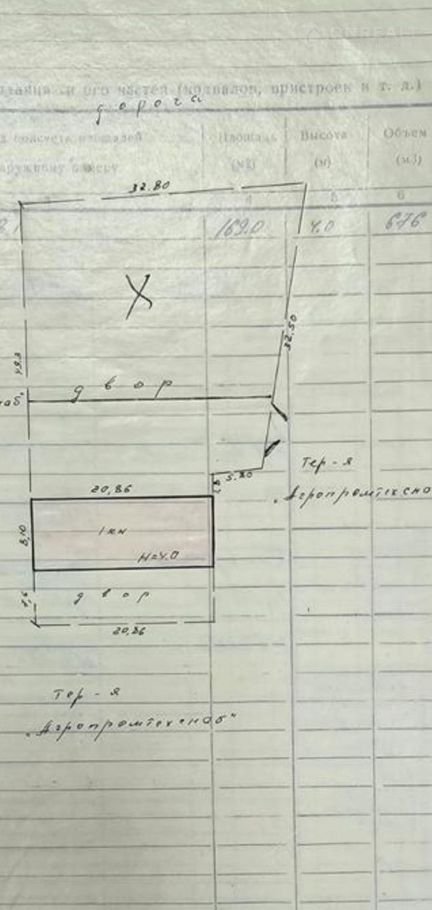 здания и его частей (подвалов, пристроек и т. д.)
дорога
подсчета площадей
Площадь
Высота
Объем
наружному обмеру
(м2)
(м)
(м3)
5
6
169.0
4.0
676
32.80
32.50
49.3
двор
5.80
Тер-я
"Агропромтехсна
20,86
8,10
1кн
H=4.0
двор
20.86
Тер-я
"Агропромтехснаб"